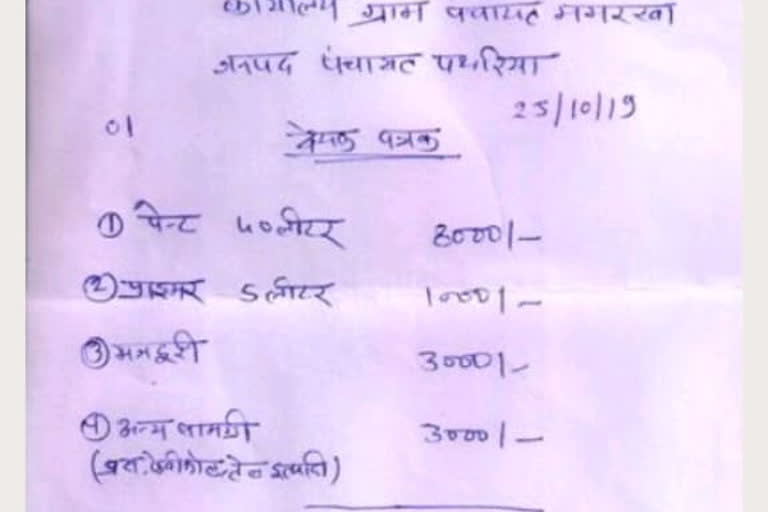 कार्यालय ग्राम पंचायत मगरखा
जनपद पंचायत पथरिया
25/10/19
01
पत्रक
① पेन्ट ५० लीटर 8000/-
② प्राइमर 5 लीटर 1000/-
③ मजदूरी 3000/-
④ अन्य सामग्री 3000/-
(ब्रश, फेवीकोल, तेल इत्यादि)